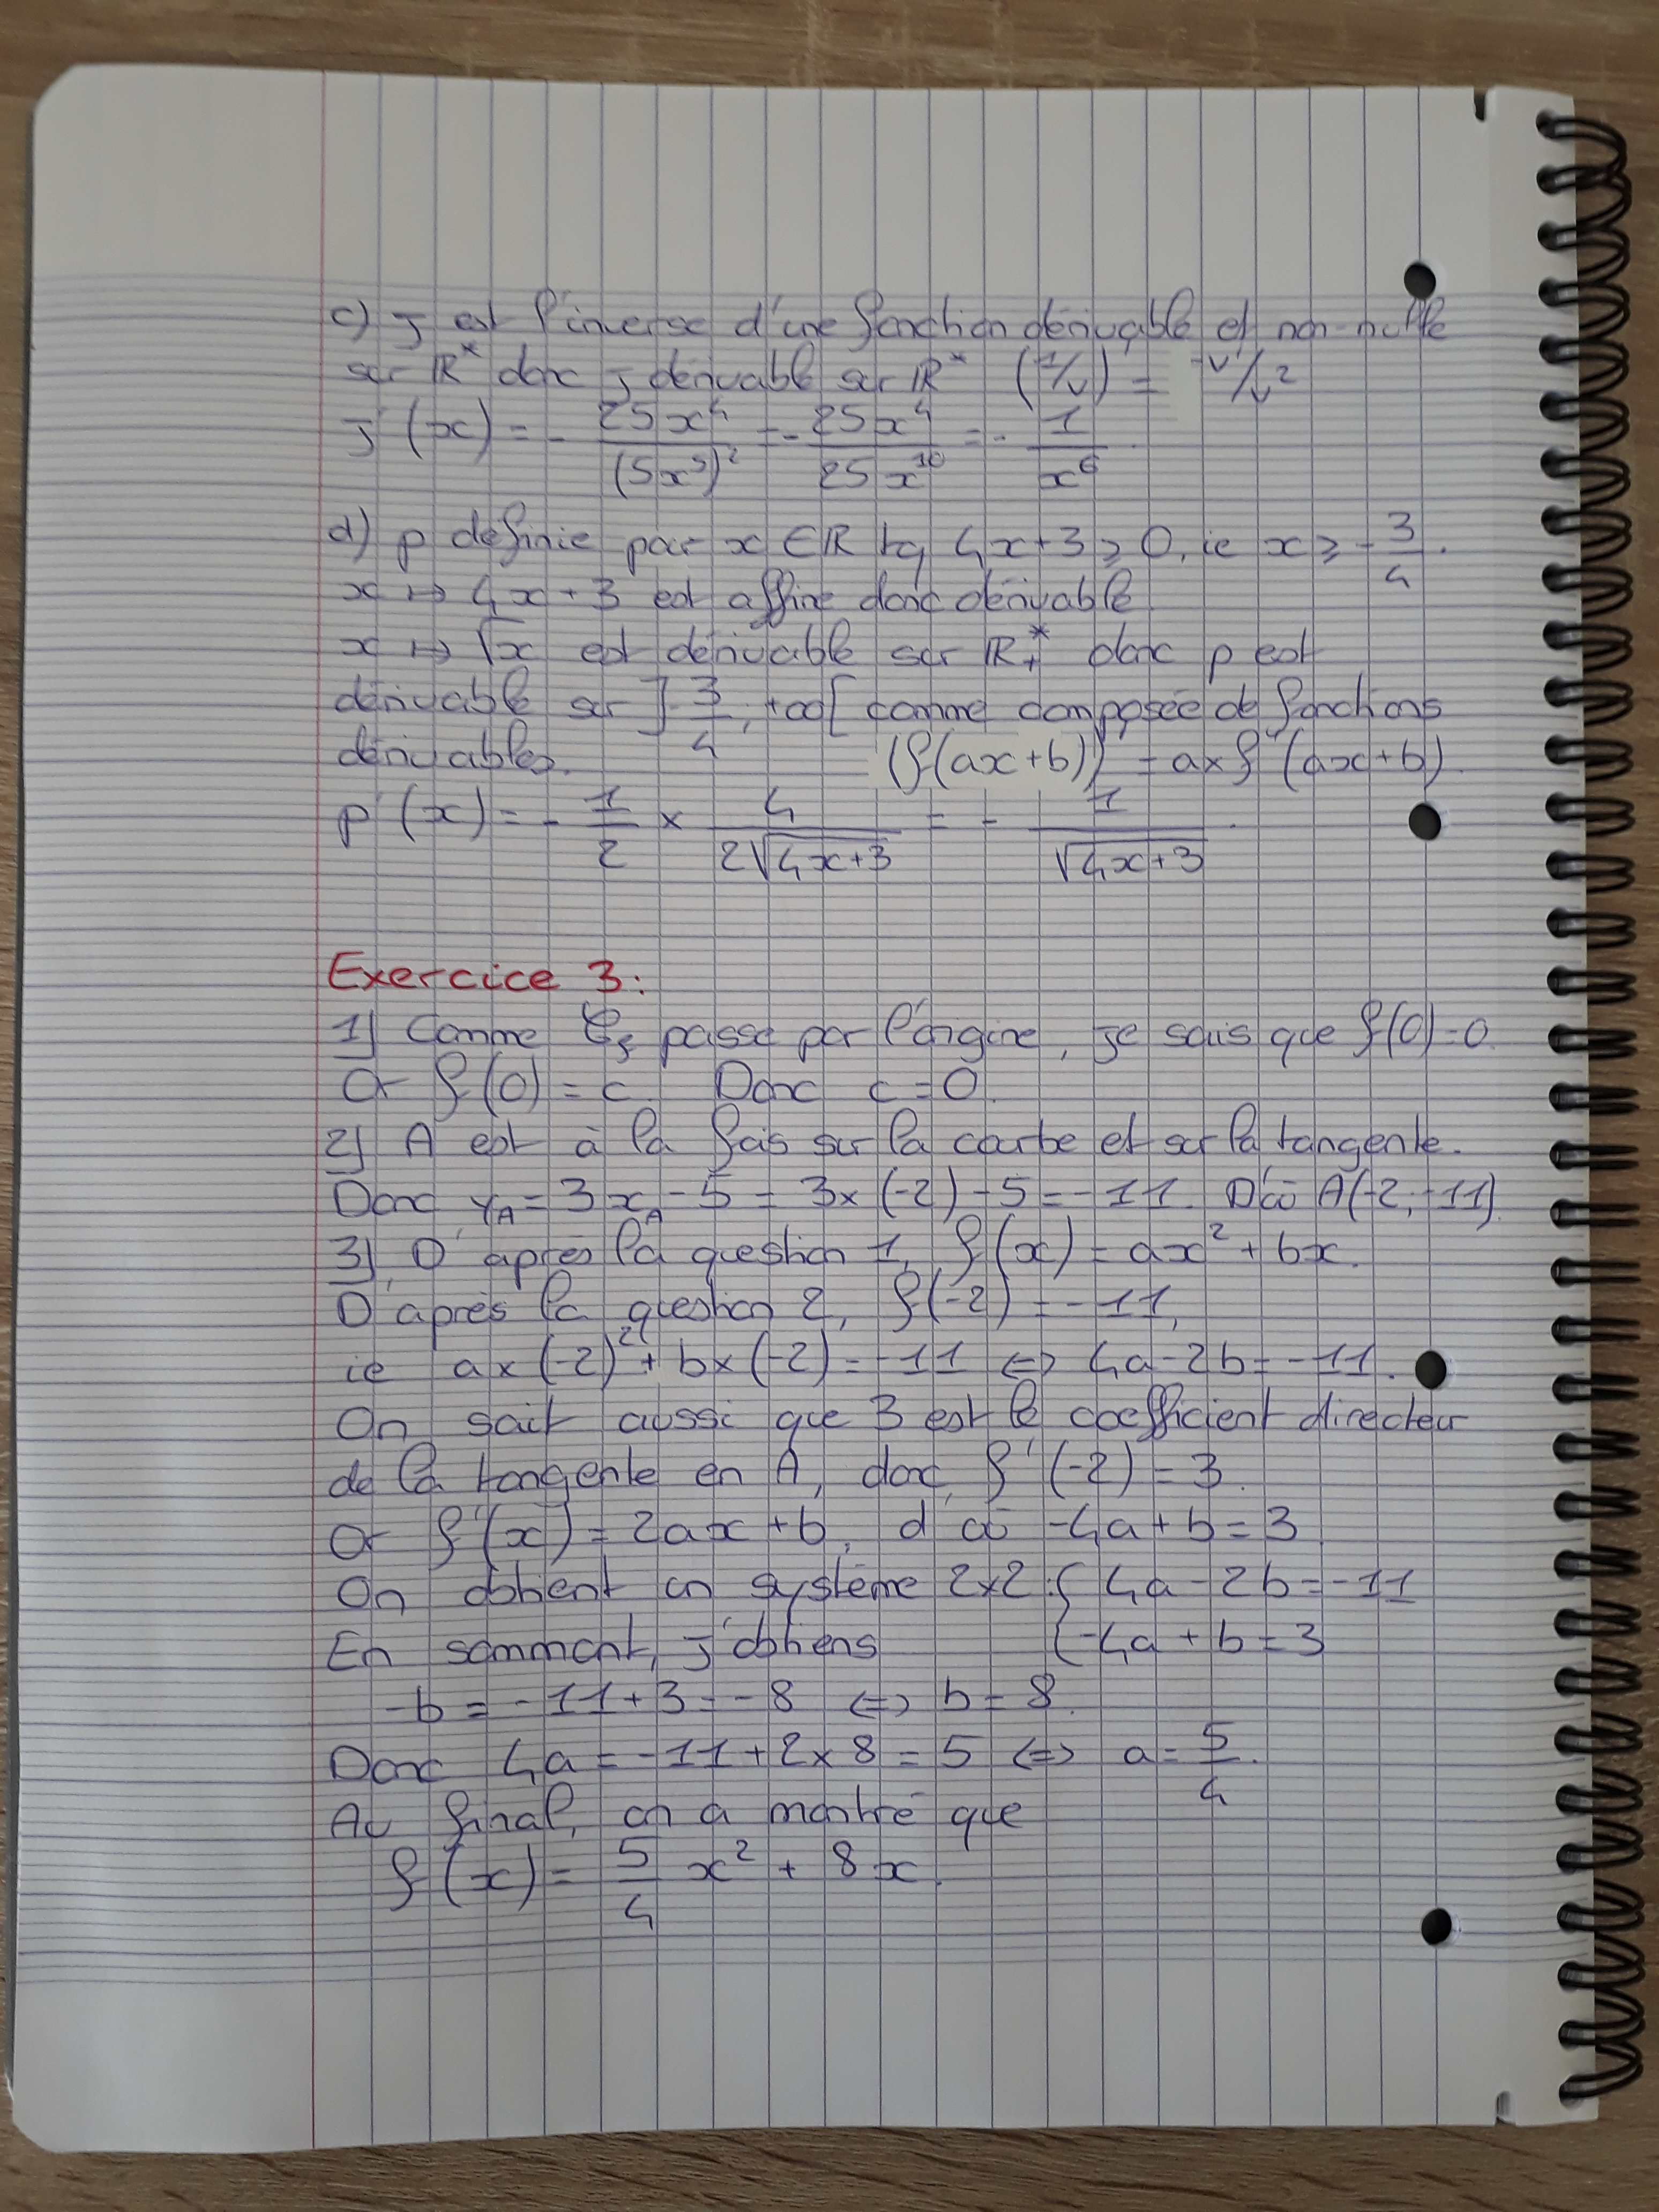 c) j est l'inverse d'une fonction dérivable et non-nulle
sur ℝ* donc j dérivable sur ℝ* (1/v)' = -v'/v²
j'(x) = - 25x⁴/(5x⁵)² = - 25x⁴/25x¹⁰ = - 1/x⁶.
d) p définie pour x ∈ ℝ tq 4x+3 ≥ 0, ie x ≥ -3/4.
x ↦ 4x+3 est affine donc dérivable
x ↦ √x est dérivable sur ℝ₊* donc p est
dérivable sur ]-3/4; +∞[ comme composée de fonctions
dérivables. (f(ax+b))' = a×f'(ax+b).
p'(x) = - 1/2 × 4/(2√(4x+3)) = - 1/√(4x+3).
Exercice 3:
1) Comme 𝒞f passe par l'origine, je sais que f(0)=0.
Or f(0) = c. Donc c = 0.
2) A est à la fois sur la courbe et sur la tangente.
Donc yA = 3xA - 5 = 3×(-2) - 5 = -11. D'où A(-2; -11).
3) D'après la question 1, f(x) = ax² + bx.
D'après la question 2, f(-2) = -11,
ie a×(-2)² + b×(-2) = -11 ⇔ 4a-2b = -11.
On sait aussi que 3 est le coefficient directeur
de la tangente en A, donc f'(-2) = 3.
Or f'(x) = 2ax + b, d'où -4a + b = 3.
On obtient un système 2×2 : { 4a - 2b = -11
En sommant, j'obtiens { -4a + b = 3
-b = -11+3 = -8 ⇔ b = 8.
Donc 4a = -11 + 2×8 = 5 ⇔ a = 5/4.
Au final, on a montré que
f(x) = 5/4 x² + 8x.